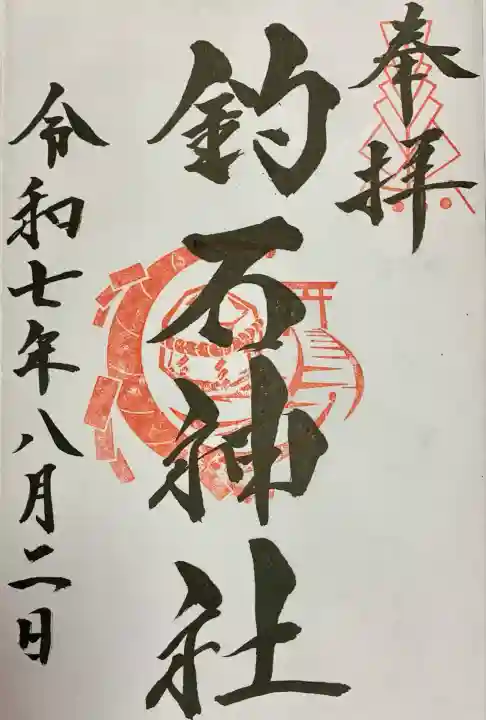 奉拝
釣石神社
令和七年八月二日